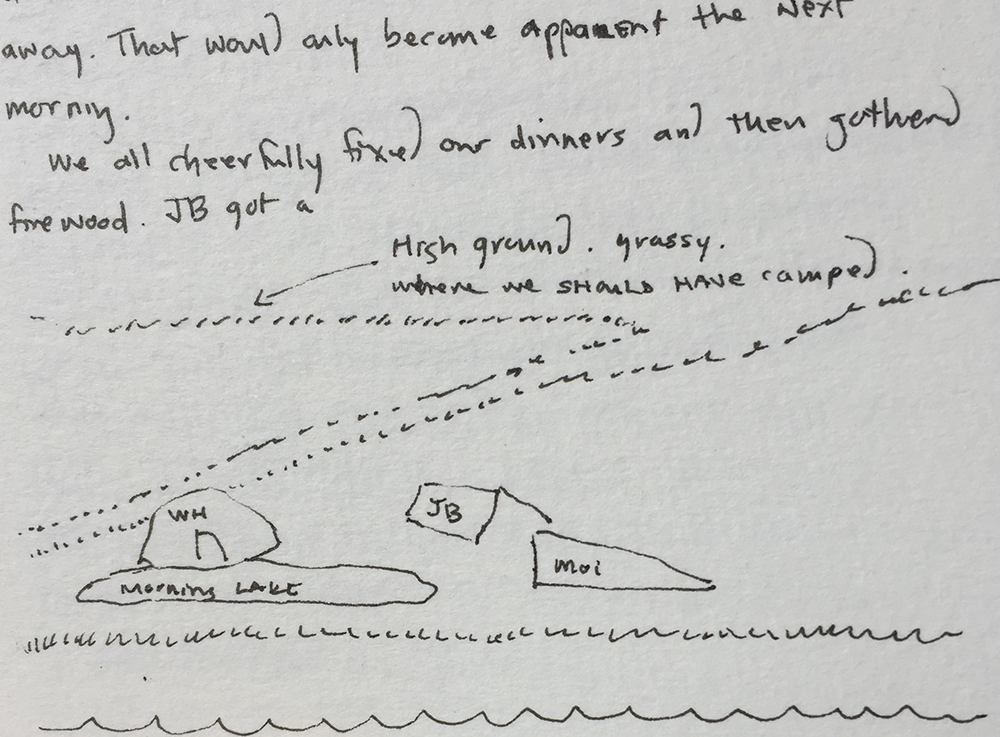 away. That would only become apparent the next
morning.
We all cheerfully fixed our dinners and then gathered
firewood. JB got a
High ground. grassy.
where we SHOULD HAVE camped.
WH
JB
moi
Morning LAKE